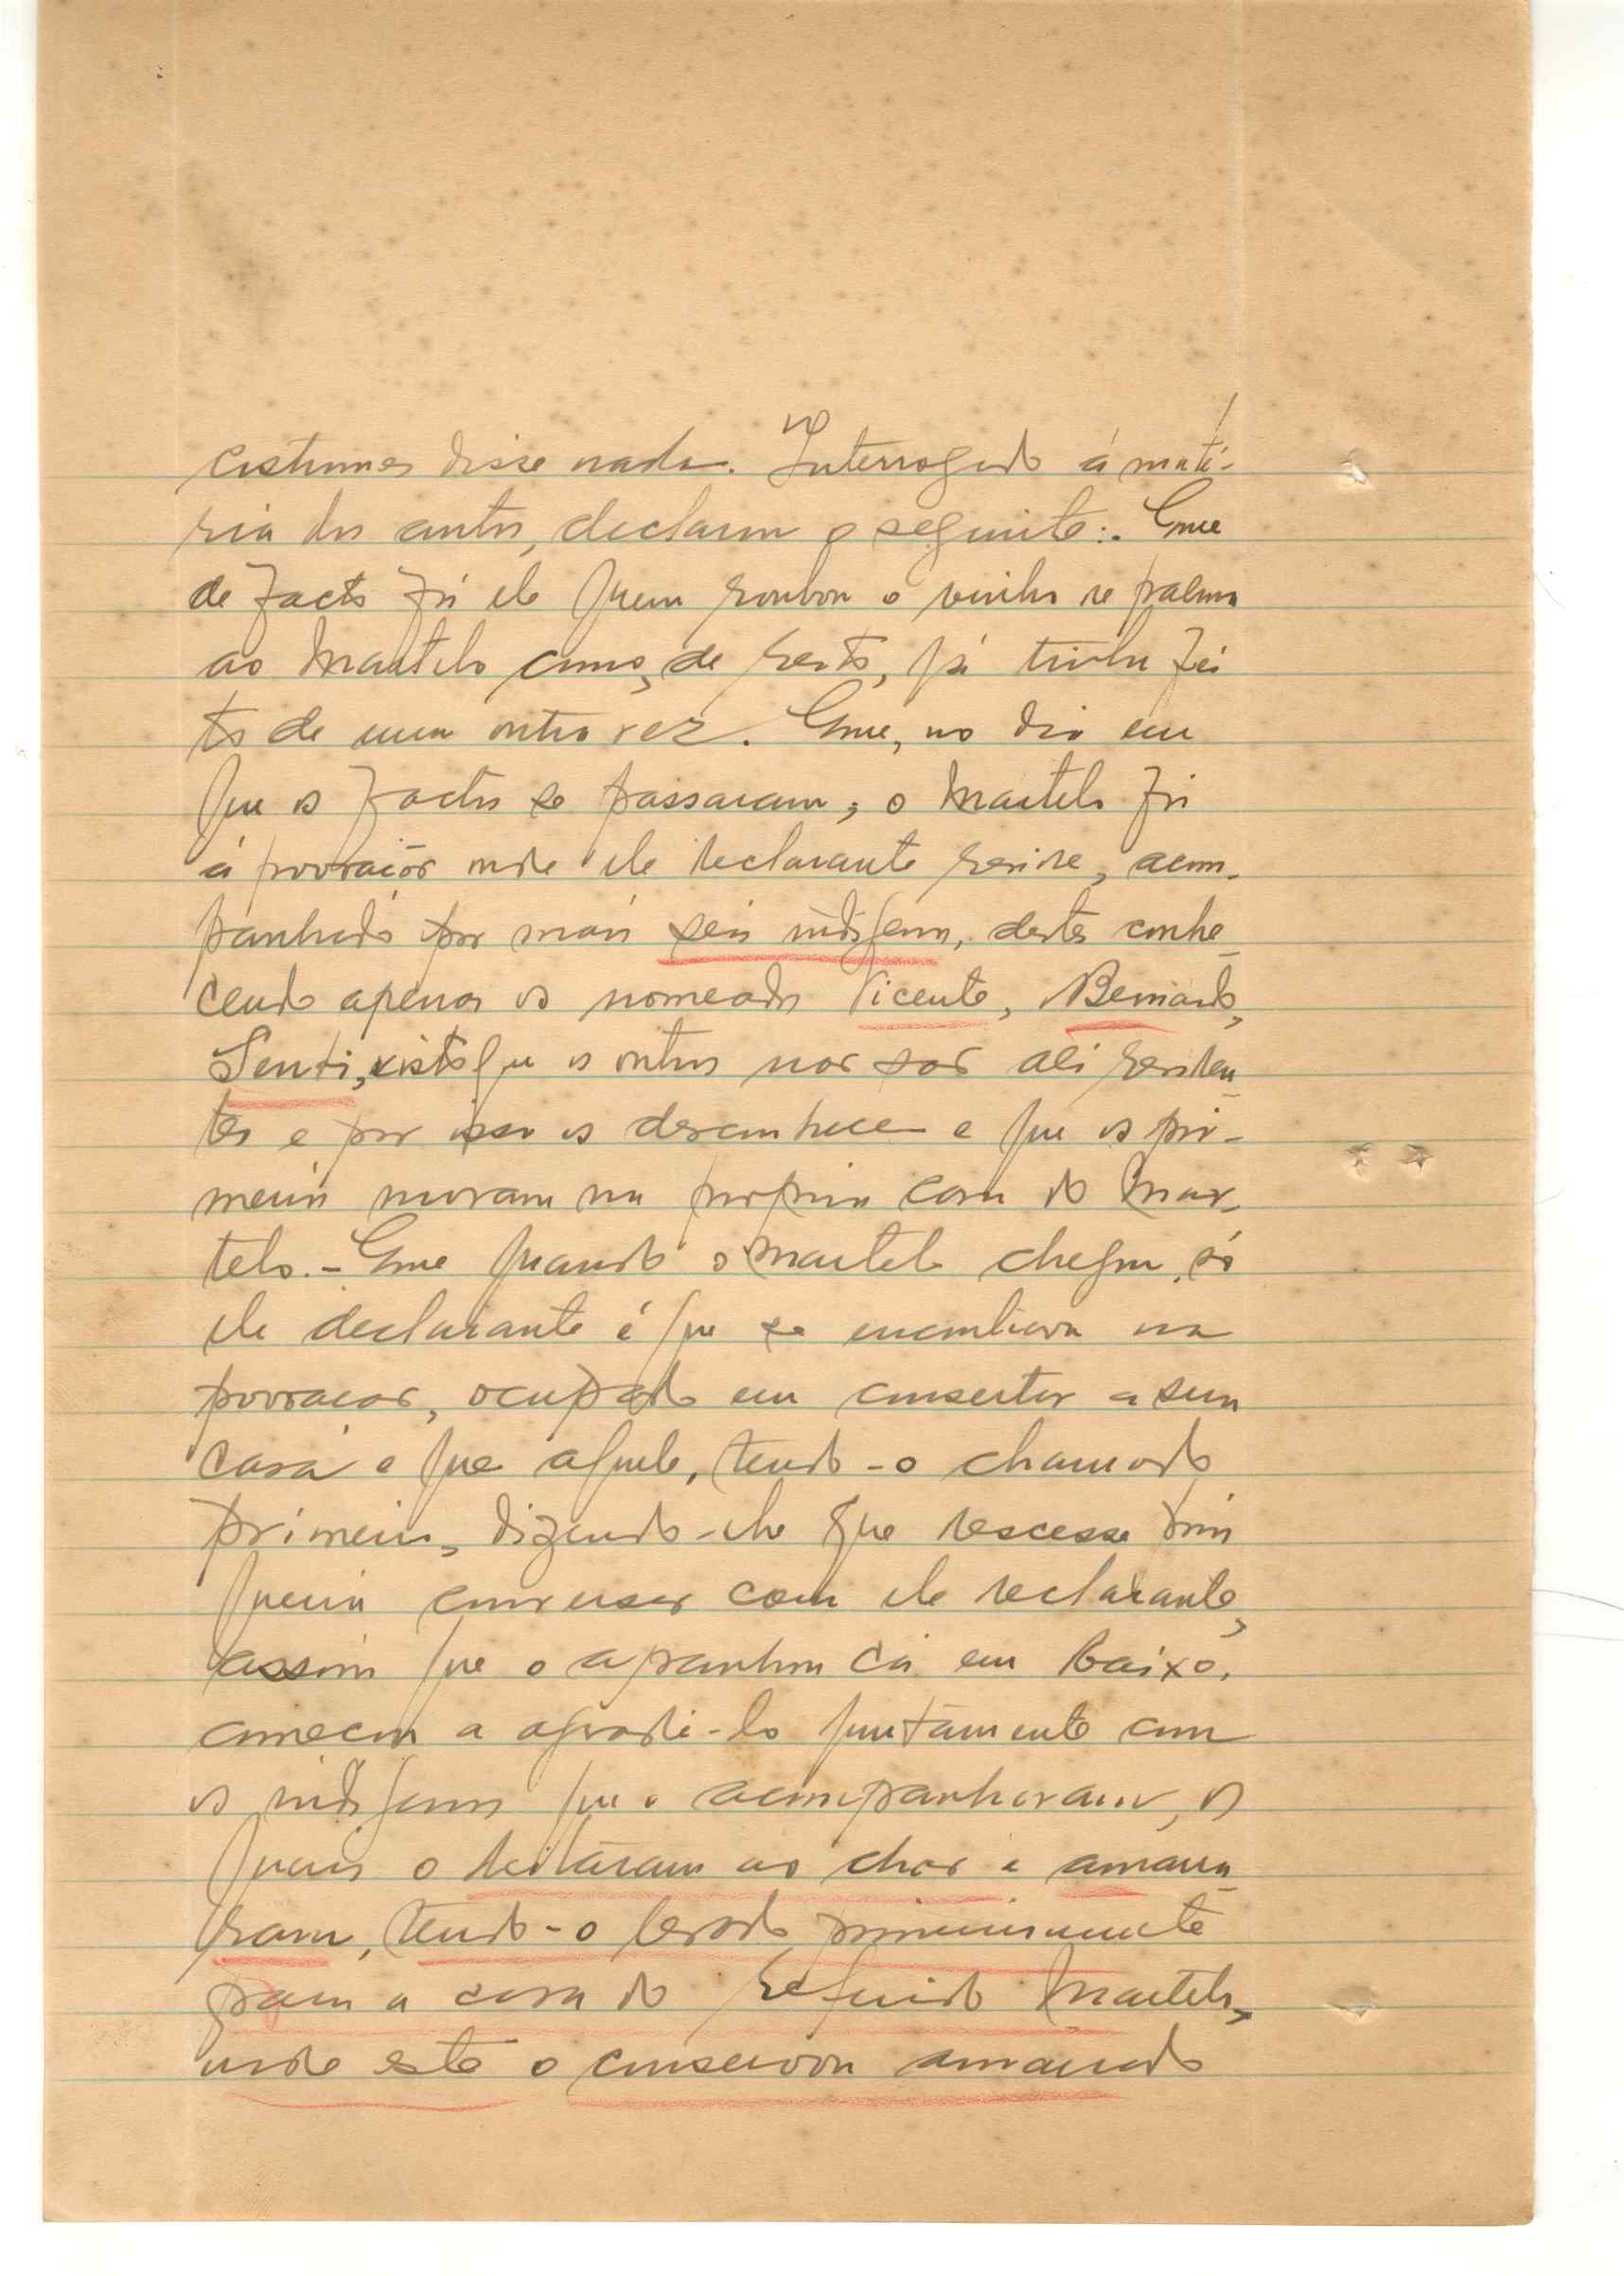 costumes disse nada. Interrogado á maté-
ria dos autos, declarou o seguinte:. Que
de facto foi ele quem roubou o vinho de palma
ao Martelo como, de resto, já tinha fei
to de uma outra vez. Que, no dia em
que os factos se passaram, o Martelo foi
á povoação onde ele declarante reside, acom-
panhado por mais seis indígenas, destes conhe-
cendo apenas os nomeados Vicente, Bernardo,
visto que os outros não são ali residen-
tes e por isso os desconhece e que os pri-
meiros moram na propria casa do Mar-
telo.- Que quando o Martelo chegou, só
ele declarante é que se encontrava na
povoação, ocupado em consertar a sua
casa e que aquele, tendo-o chamado
primeiro, dizendo-lhe que descesse pois
queria conversar com ele declarante,
assim que o apanhou cá em baixo,
começou a agredi-lo juntamente com
os indígenas que o acompanhavam, os
quais o deitáram ao chão e amarra-
ram, tendo-o levado primeiramente
para a casa do referido Martelo,
onde este o conservou amarrado